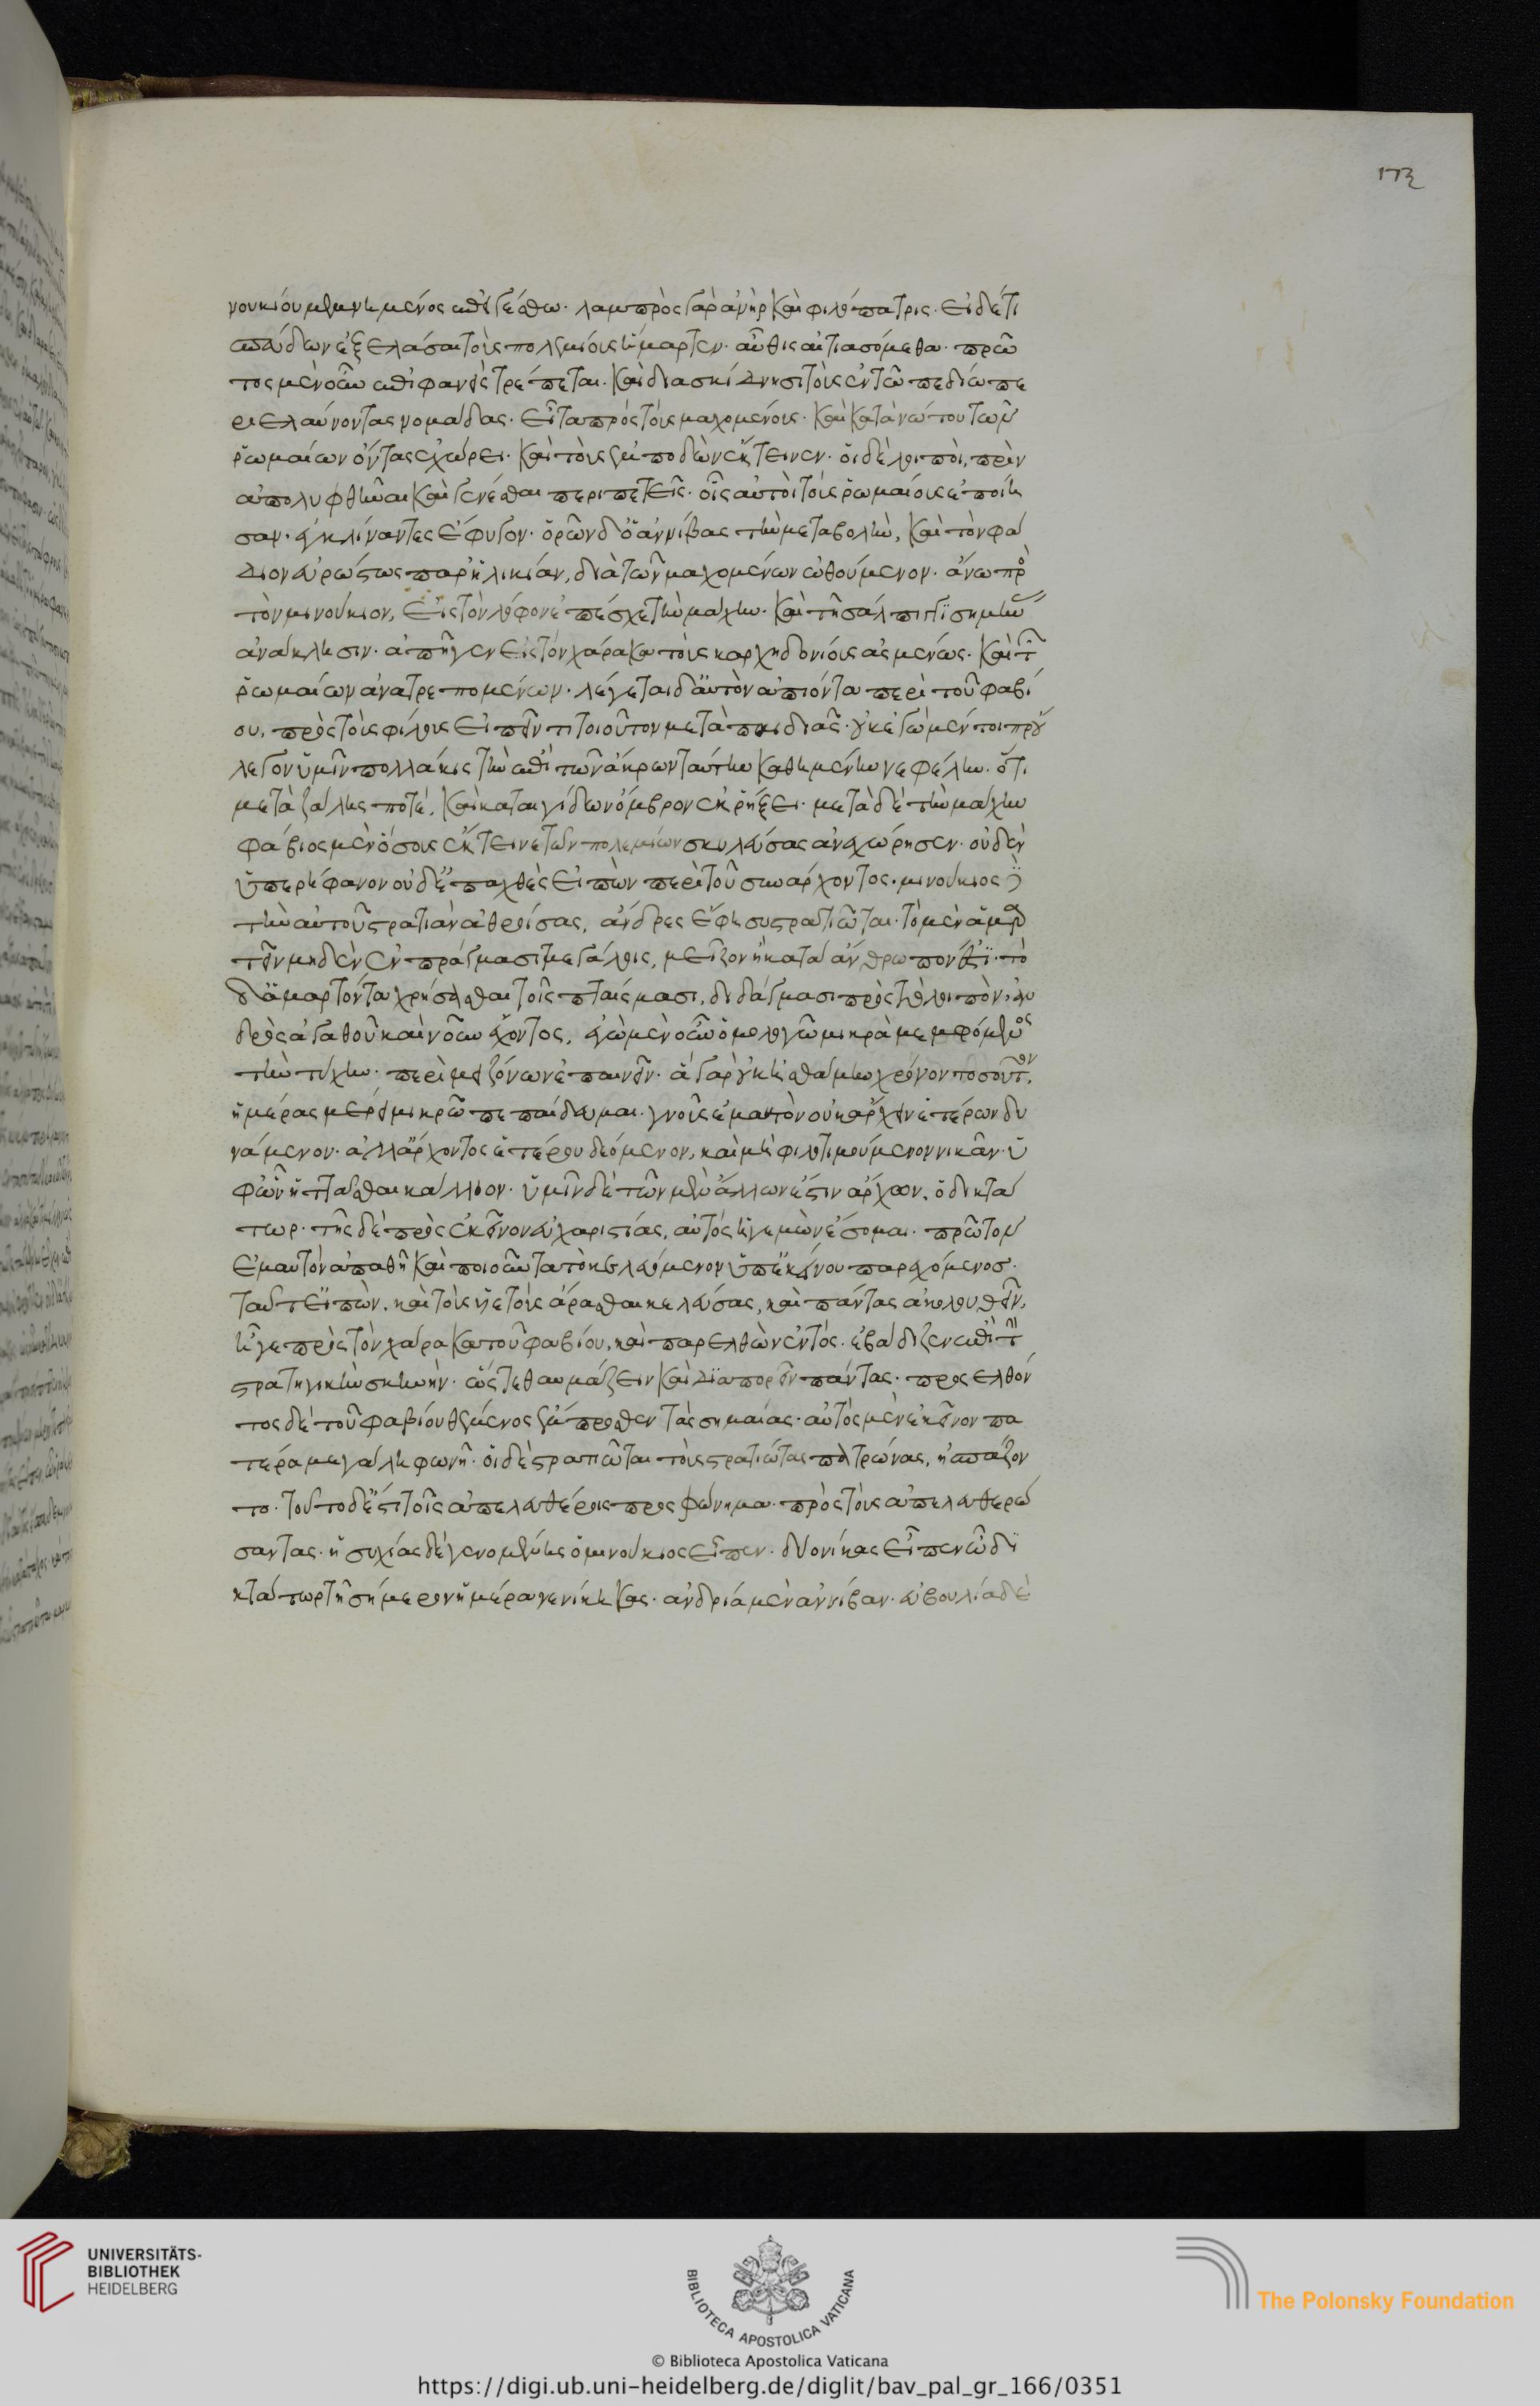 νουκίου μεμνημένος ἐπειγέσθω· λαμπρὸς γὰρ ἀνὴρ καὶ φιλόπατρις· εἰ δέ τι
σπεύδων ἐξελάσαι τοὺς πολεμίους ἥμαρτεν· αὖθις αἰτιασόμεθα· πρῶ
τος μὲν οὖν ἐπιφανεὶς τρέπεται· καὶ διασκίδνησι τοὺς ἐν τῶ πεδίω πε
ριελαύνοντας νομάδας· εἶτα πρὸς τοὺς μαχομένους· καὶ κατὰ νώτου τῶν
ῥωμαίων ὄντας ἐχώρει· καὶ τοὺς ἐμποδὼν ἔκτεινεν· οἱ δὲ λοιποὶ, πρὶν
ἀποληφθῆναι καὶ γενέσθαι περιπετεῖς· οἷς αὐτοὶ τοὺς ῥωμαίους ἐποίη
σαν· ἐγκλίναντες ἔφυγον· ὁρῶν δ' ὁ ἀννίβας τὴν μεταβολὴν, καὶ τὸν φά
βιον εὐρώστως παρ' ἡλικίαν, διὰ τῶν μαχομένων ὠθούμενον· ἄνω πρὸ
τὸν μινούκιον, εἰς τὸν λόφον ἐπέσχε τὴν μάχην· καὶ τῆ σάλπιγγι σημήν
ἀνάκλησιν· ἀπῆγεν εἰς τὸν χάρακα τοὺς καρχηδονίους ἀσμένως· καὶ τ
ῥωμαίων ἀνατρεπομένων· λέγεται δ' αὐτὸν ἀπιόντα περὶ τοῦ φαβί
ου, πρὸς τοὺς φίλους εἰπεῖν τι τοιοῦτον μετὰ παιδιᾶς· οὐκ ἐγὼ μέντοι προὔ
λεγον ὑμῖν πολλάκις τὴν ἐπὶ τῶν ἄκρων ταύτην καθημένην νεφέλην· ὅτι
μετὰ ζάλης ποτέ, καὶ καταιγίδων ὄμβρον ἐκρήξει· μετὰ δὲ τὴν μάχην
φάβιος μὲν ὅσους ἔκτεινε τῶν πολεμίων σκυλεύσας ἀνεχώρησεν· οὐδὲν
ὑπερήφανον οὐδ' ἐπαχθὲς εἰπὼν περὶ τοῦ συνάρχοντος· μινούκιος δὲ
τὴν αὐτοῦ στρατιὰν ἀθροίσας, ἄνδρες ἔφη συστρατιῶται· τὸ μὲν ἁμαρ
τεῖν μηδὲν ἐν πράγμασι μεγάλοις, μεῖζον ἢ κατὰ ἄνθρωπόν ἐστι· τὸ
δ' ἁμαρτόντα χρήσασθαι τοῖς πταίσμασι, διδάγμασι πρὸς τὸ λοιπὸν, ἀν
δρὸς ἀγαθοῦ καὶ νοῦν ἔχοντος, ἐγὼ μὲν οὖν ὁμολογῶ μικρὰ μεμφόμενος
τὴν τύχην· περὶ μειζόνων ἐπαινεῖν· ἃ γὰρ οὐκ ἠσθόμην χρόνον τοσοῦτον,
ἡμέρας μέρει μικρῶ πεπαίδευμαι· γνοὺς ἐμαυτὸν οὐκ ἄρχειν ἑτέρων δυ
νάμενον· ἀλλ' ἄρχοντος ἑτέρου δεόμενον, καὶ μὴ φιλοτιμούμενον νικᾶν· ὑ
φ' ὧν ἡττᾶσθαι κάλλιον· ὑμῖν δὲ τῶν μὲν ἄλλων ἐστὶν ἄρχων, ὁ δικτά
τωρ· τῆς δὲ πρὸς ἐκεῖνον εὐχαριστίας, αὐτὸς ἡγεμὼν ἔσομαι· πρῶτον
ἐμαυτὸν εὐπαθῆ καὶ ποιοῦντα τὸ κελευόμενον ὑπ' ἐκείνου παρεχόμενος·
ταῦτ' εἰπὼν, καὶ τοὺς ἀετοὺς ἄρασθαι κελεύσας, καὶ πάντας ἀκολουθεῖν,
ἦγε πρὸς τὸν χάρακα τοῦ φαβίου, καὶ παρελθὼν ἐντός· ἐβάδιζεν ἐπὶ τὴν
στρατηγικὴν σκηνήν· ὥστε θαυμάζειν καὶ διαπορεῖν πάντας· προσελθόν
τος δὲ τοῦ φαβίου θέμενος ἔμπροσθεν τὰς σημαίας· αὐτὸς μὲν ἐκεῖνον πα
τέρα μεγάλη φωνῆ· οἱ δὲ στρατιῶται τοὺς στρατιώτας πάτρωνας, ἠσπάζον
το· τοῦτο δ' ἔστι τοῖς ἀπελευθέροις προσφώνημα· πρὸς τοὺς ἀπελευθερώ
σαντας· ἡσυχίας δὲ γενομένης ὁ μινούκιος εἶπεν· δύο νίκας εἶπεν ὦ δι
κτάτωρ τῆ σήμερον ἡμέρα νενίκηκας· ἀνδρία μὲν ἀννίβαν· εὐβουλία δὲ